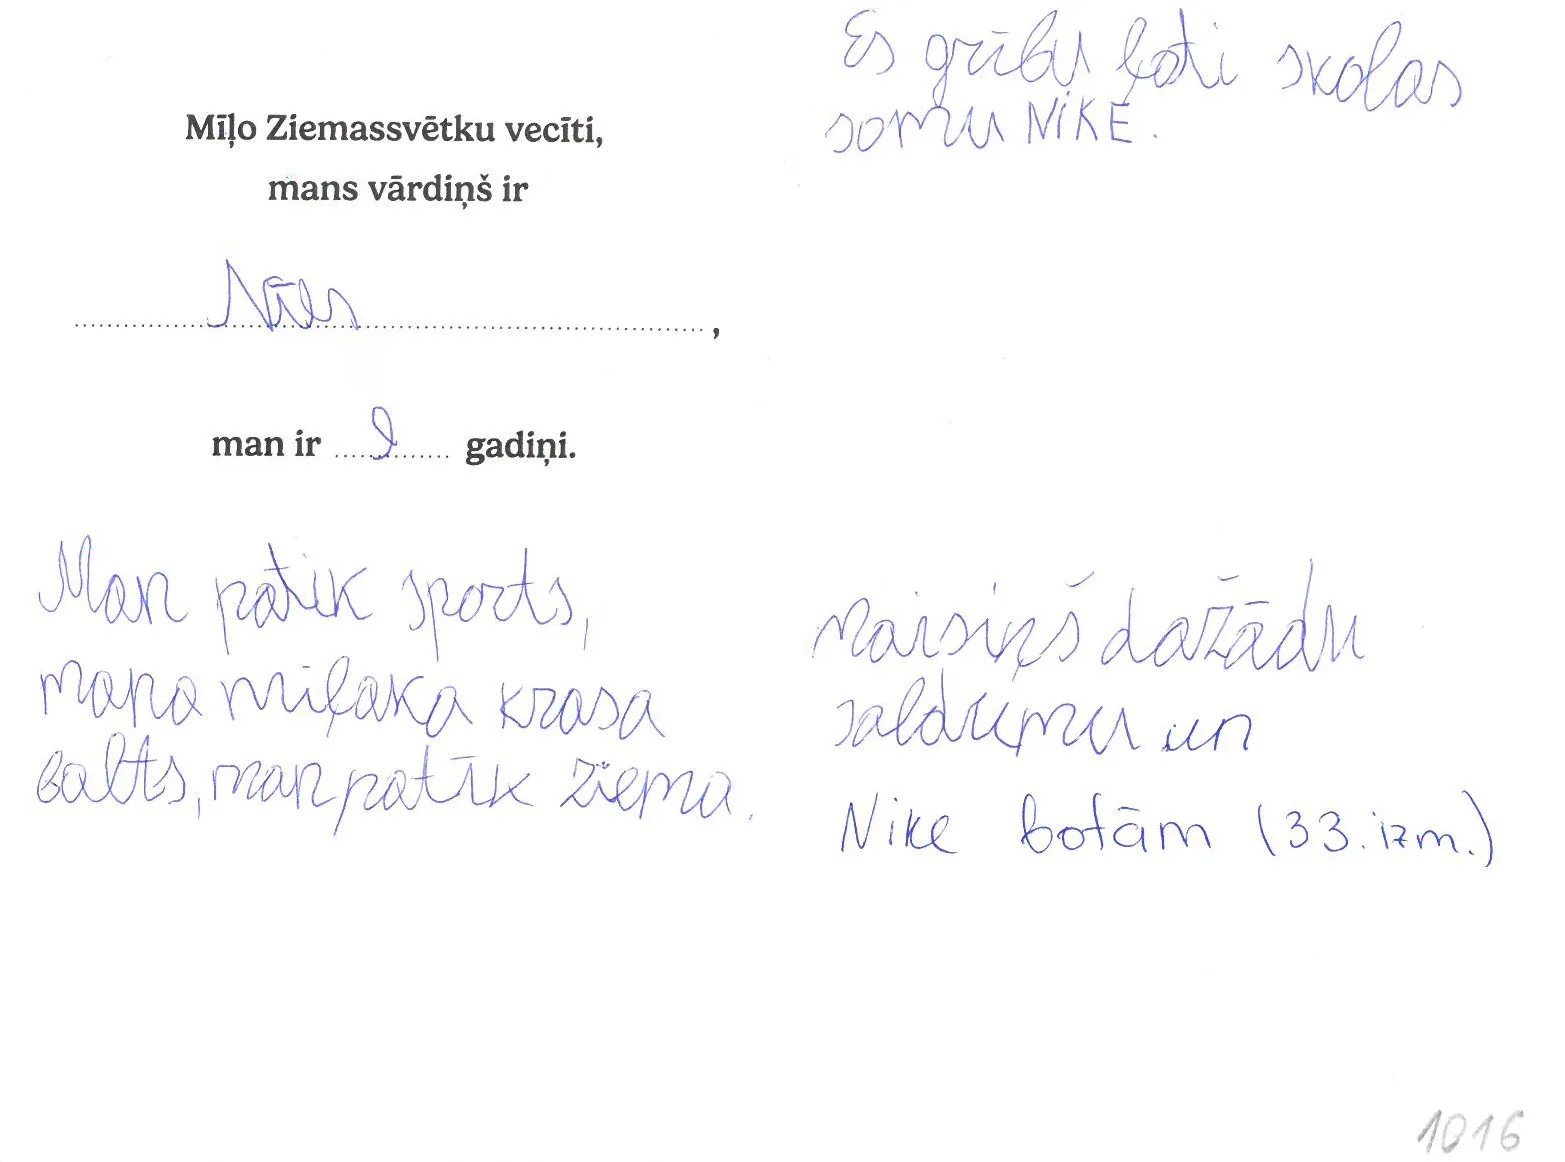 Mīļo Ziemassvētku vecīti,
mans vārdiņš ir
Nils,
man ir 9 gadiņi.
Man patīk sports,
mana mīļaka krasa
balts, man patīk ziema.
Es grību ļoti skolas
somu NIKE.
Maisiņš dažādu
saldumu un
Nike botām (33. izm.)
1016